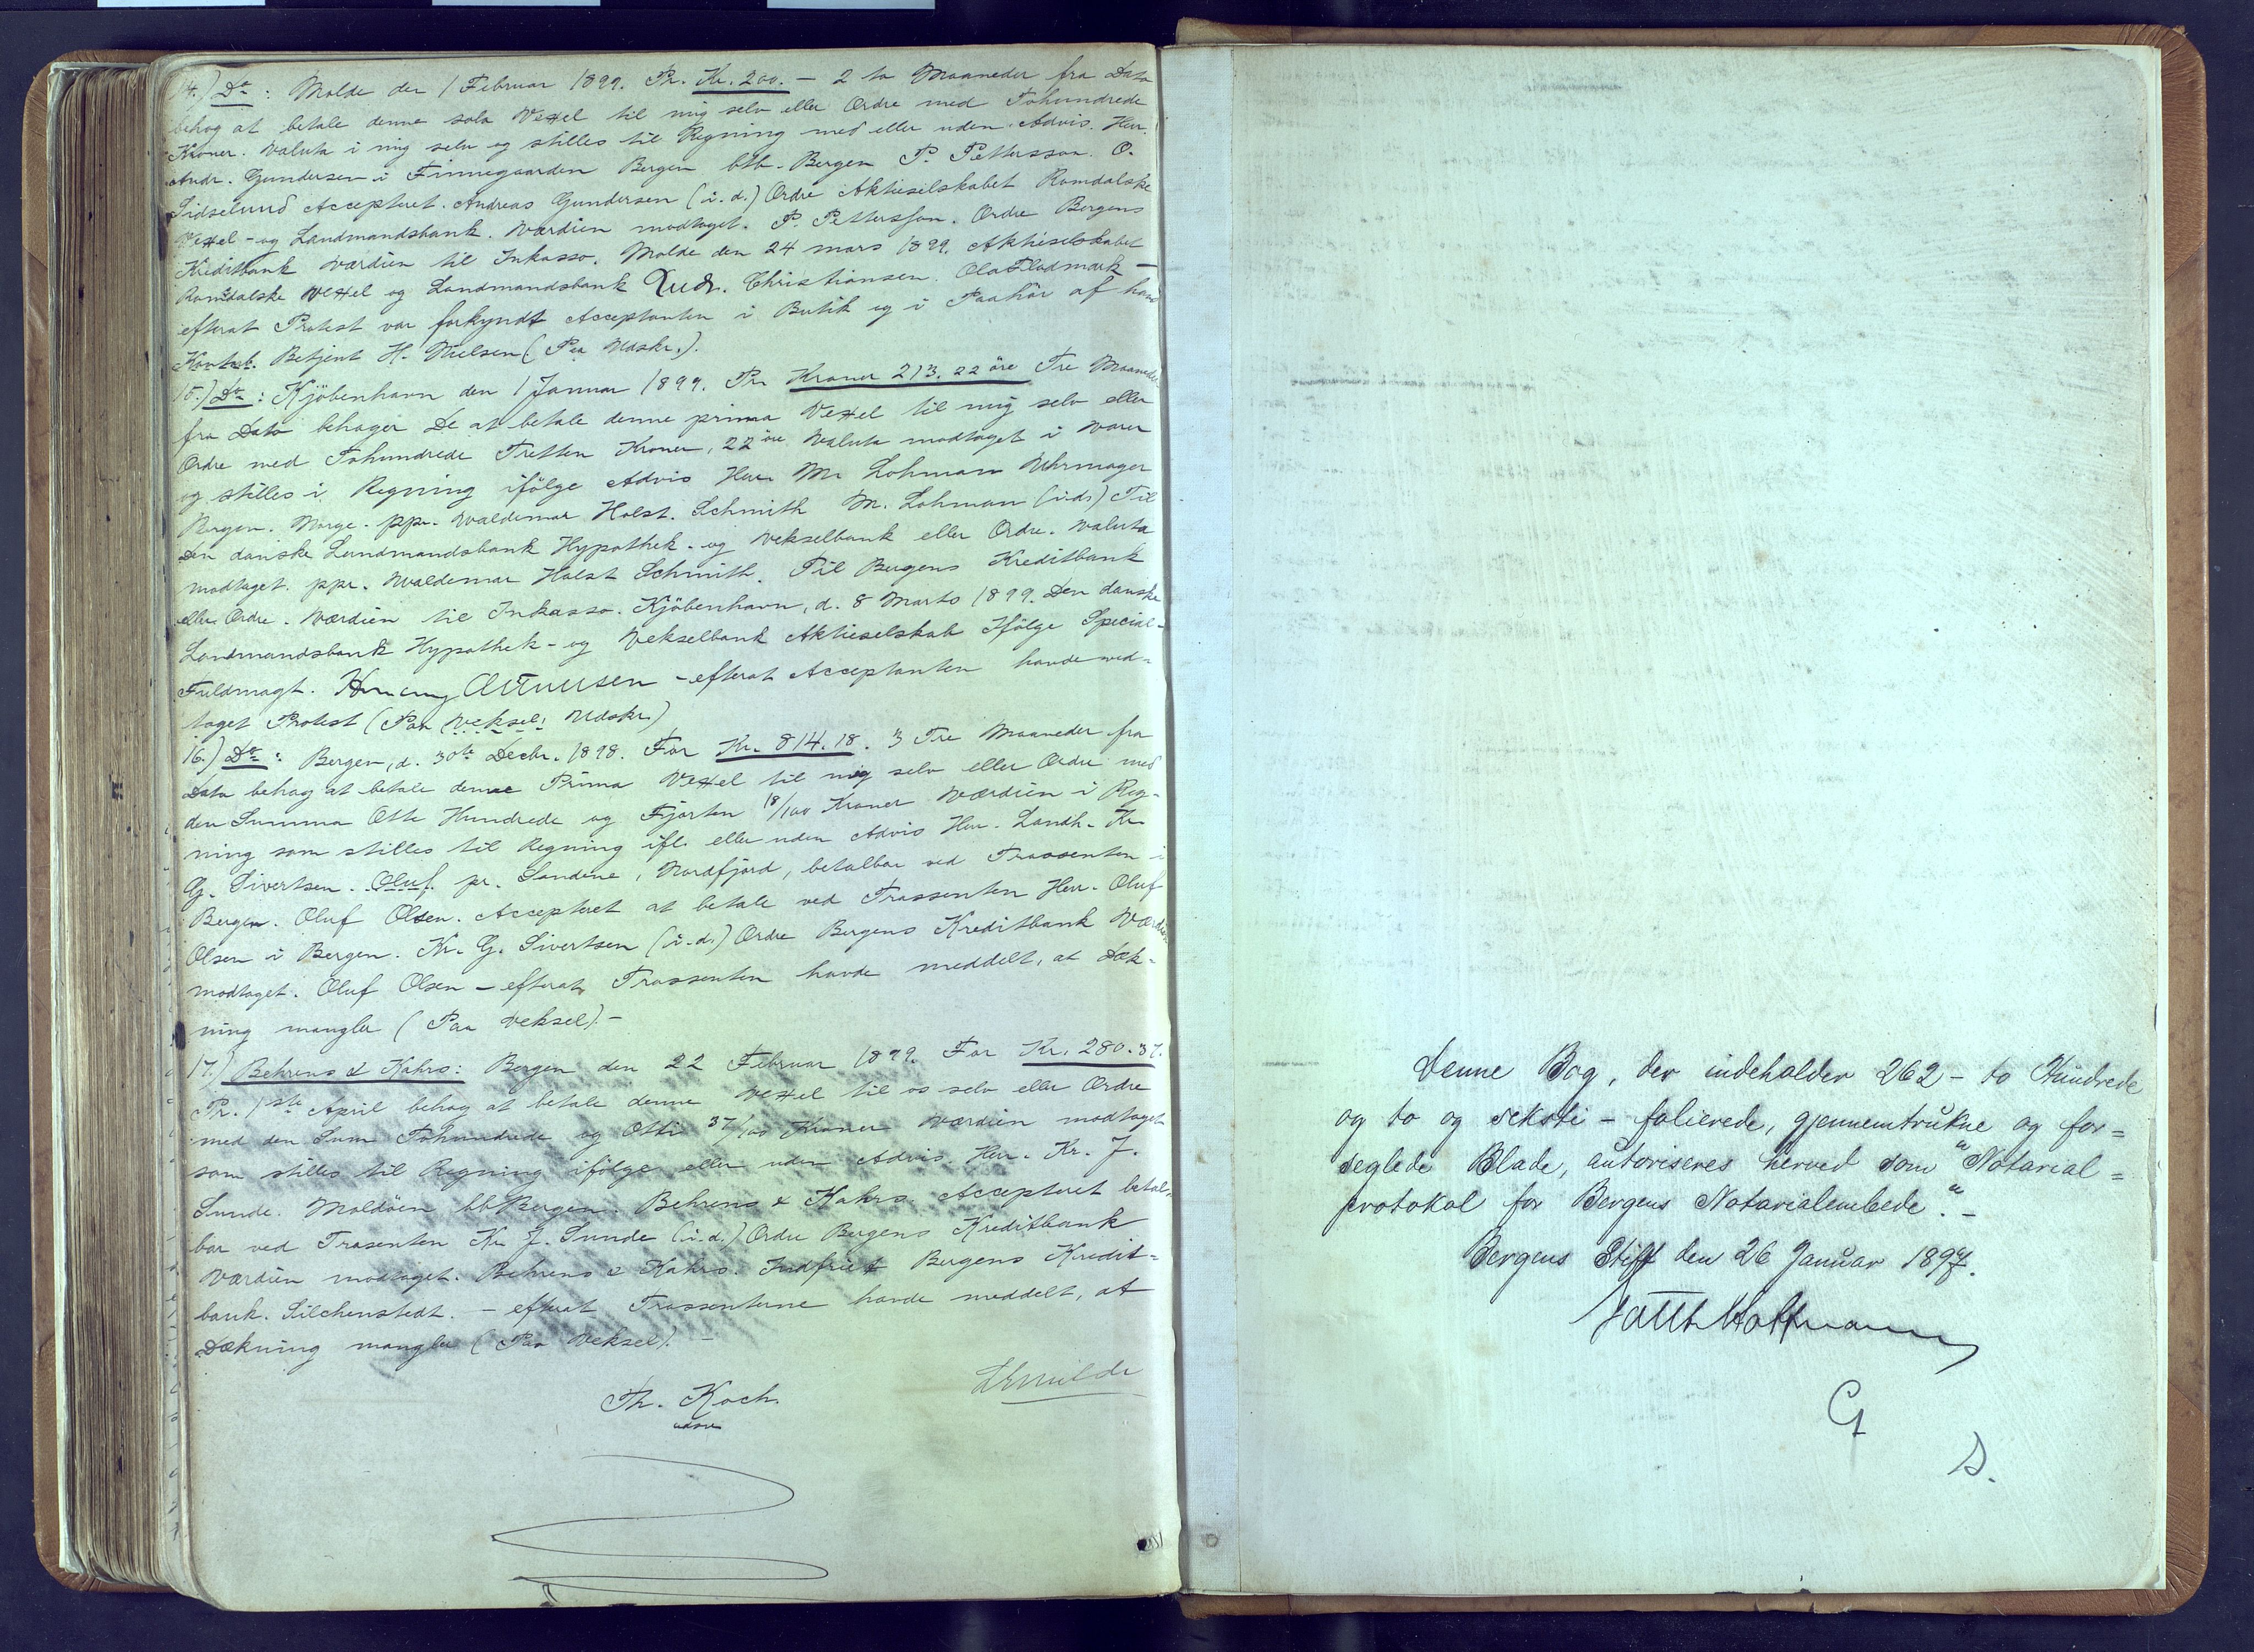 14.) Do: Molde den 1 Februar 1899. Pr. Kr. 200. – 2 to Maaneder fra Dato
behag at betale denne sola Vexel til mig selv eller Ordre med Tohundrede
Kroner. Valuta i mig selv og stilles til Regning med eller uden Advis. Herr.
Andr. Gundersen i Finnegaarden Bergen btb. Bergen P. Pettersson. O.
Sidselund Accepteret. Andreas Gundersen (i.d.) Ordre Aktieselskabet Romdalske
Vexel- og Landmandsbank. Værdien modtaget. P. Pettersson. Ordre Bergens
Kreditbank Værdien til Inkasso. Molde den 24 mars 1899. Aktieselskabet
Romsdalske Vexel og Landmandsbank Andr. Christiansen. Ola Flodmark –
efterat Protest var forkyndt Acceptanten i Butik og i Paahör af hans
Betjent H. Nielsen (Paa Udskr.).
15.) Do: Kjöbenhavn den 1 Januar 1899. Pr. Kroner 213. 22 öre Tre Maaneder
fra Dato behager De at betale denne prima Vexel til mig selv eller
Ordre med Tohundrede Tretten Kroner, 22 öre Valuta modtaget i Varer
og stilles i Regning ifölge Advis Herr M. Lohman Uhrmager
Bergen. Norge. ppr. Waldemar Holst. Schmith M. Lohman (i.d.) Til
Den danske Landmandsbank Hypothek- og Vekselbank eller Ordre. Valuta
modtaget. ppr. Waldemar Holst Schmith. Til Bergens Kreditbank
eller Ordre. Værdien til Inkasso. Kjöbenhavn, d. 8 Marts 1899. Den danske
Landmandsbank Hypothek- og Vekselbank Aktieselskab Ifölge Special-
Fuldmagt. – efterat Acceptanten havde ved-
taget Protest (Paa Veksel: Udskr.)
16.) Do: Bergen, d. 30te Decbr. 1898. For Kr. 814. 18. 3 Tre Maaneder fra
Dato behag at betale denne Prima Vexel til mig selv eller Ordre med
den Summa Otte Hundrede og Fjorten 18/100 Kroner Værdien i Reg-
ning som stilles til Regning ifl. eller uden Advis Herr. Landh. Kr.
G. Sivertsen. Oluf. pr. Sandene, Nordfjord, betalbar ved Trassenten i
Bergen. Oluf Olsen. Accepteret at betale ved Trassenten Herr. Oluf
Olsen i Bergen. Kr. G. Sivertsen (i.d.) Ordre Bergens Kreditbank Værdien
modtaget. Oluf Olsen – efterat Trassenten havde meddelt, at Dæk-
ning mangler (Paa Veksel). –
17.) Behrens & Kahrs: Bergen den 22 Februar 1899. For Kr. 280. 37.
Pr. 1ste April behag at betale denne Vexel til os selv eller Ordre
med den Sum Tohundrede og Otti 37/100 Kroner Værdien modtaget
som stilles til Regning ifölge eller uden Advis. Herr. Kr. J.
Sunde. Moldöen bb Bergen. Behrens & Kahrs. Accepteret betal-
bar ved Trasenten Kr. J. Sunde (i.d.) Ordre Bergens Kreditbank
Værdien modtaget. Behrens & Kahrs. Indfriet Bergens Kredit-
bank. Silchenstedt. – efterat Trassenterne havde meddelt, at
Dækning mangler (Paa Veksel). –
Th. Koch
Denne Bog, der indeholder 262 – to Hundrede
og to og seksti – folierede, gjennemtrukne og for=
seglede Blade, autoriseres herved som "Notarial=
protokol for Bergens Notarialembede". –
Bergens Stift den 26 Januar 1897.
G
S.